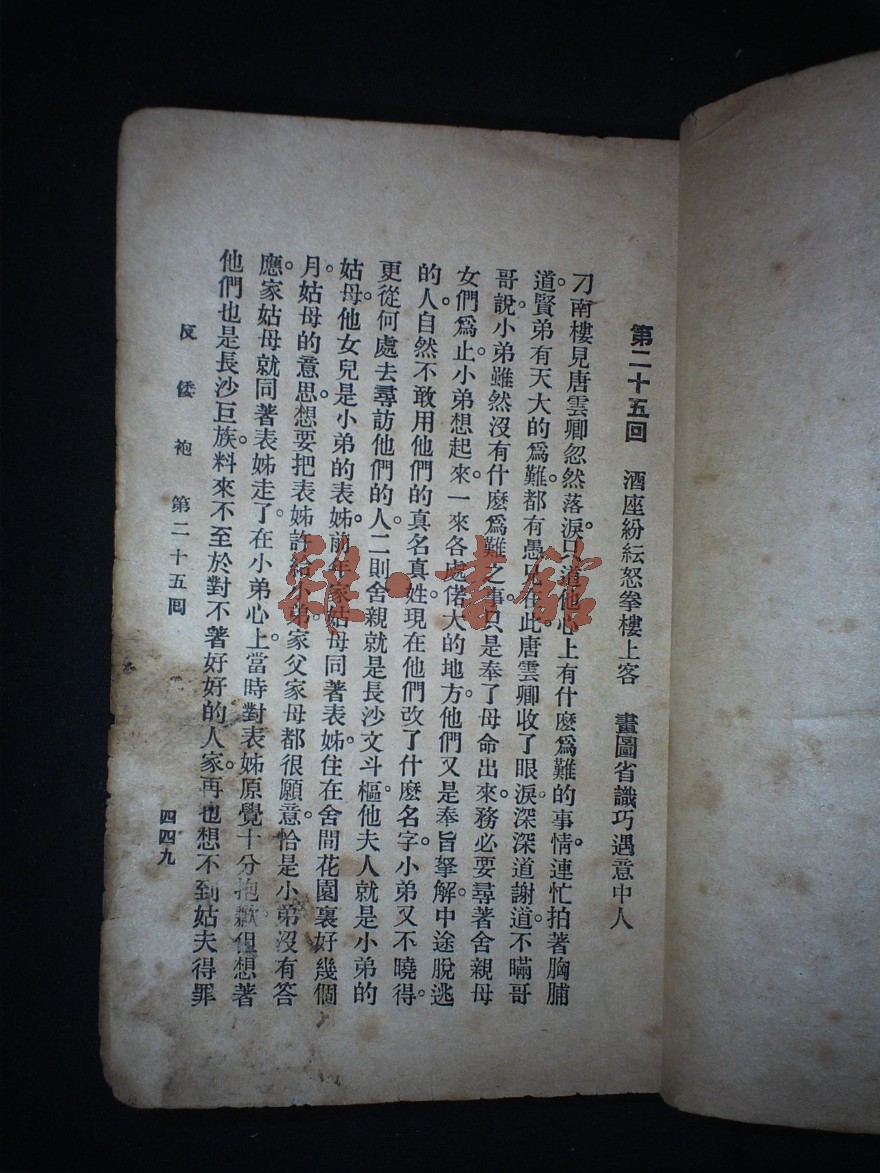 第二十五回 酒座紛紜怒拳樓上客 畫圖省識巧遇意中人
刁南樓見唐雲卿忽然落淚。只道他心上有什麼爲難的事情。連忙拍著胸脯
道。賢弟有天大的爲難。都有愚兄在此。唐雲卿收了眼淚。深深道謝道。不瞞哥
哥說。小弟雖然沒有什麼爲難之事。只是奉了母命出來。務必要尋著舍親母
女們爲止。小弟想起來。一來各處偌大的地方。他們又是奉旨拏解。中途脫逃
的人。自然不敢用他們的真名真姓。現在他們改了什麼名字。小弟又不曉得。
更從何處去尋訪他們的人。二則舍親就是長沙文斗樞。他夫人就是小弟的
姑母。他女兒是小弟的表姊。前年家姑母同著表姊住在舍間花園裏好幾個
月。姑母的意思。想要把表姊許給小弟。家父家母都很願意。恰是小弟沒有答
應。家姑母就同著表姊走了。在小弟心上。當時對表姊原覺十分抱歉。但想著
他們也是長沙巨族。料來不至於對不著好好的人家。再也想不到姑夫得罪
反倭袍 第二十五回
四四九
書館